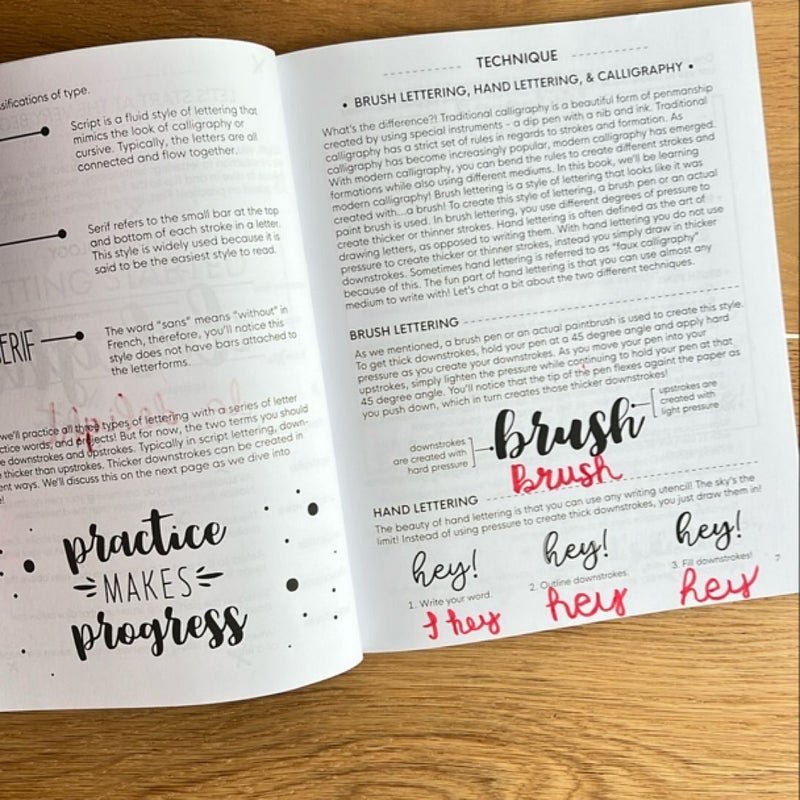 sifications of type.
Script is a fluid style of lettering that
mimics the look of calligraphy or
cursive. Typically, the letters are all
connected and flow together.
Serif refers to the small bar at the top
and bottom of each stroke in a letter.
This style is widely used because it is
said to be the easiest style to read.
ERIF
The word "sans" means "without" in
French, therefore, you'll notice this
style does not have bars attached to
the letterforms.
we'll practice all three types of lettering with a series of letter
ctice words, and projects! But for now, the two terms you should
e downstrokes and upstrokes. Typically in script lettering, down-
thicker than upstrokes. Thicker downstrokes can be created in
ent ways. We'll discuss this on the next page as we dive into
practice
MAKES
progress
TECHNIQUE
• BRUSH LETTERING, HAND LETTERING, & CALLIGRAPHY •
What's the difference?! Traditional calligraphy is a beautiful form of penmanship
created by using special instruments - a dip pen with a nib and ink. Traditional
calligraphy has a strict set of rules in regards to strokes and formation. As
calligraphy has become increasingly popular, modern calligraphy has emerged.
With modern calligraphy, you can bend the rules to create different strokes and
formations while also using different mediums. In this book, we'll be learning
modern calligraphy! Brush lettering is a style of lettering that looks like it was
created with...a brush! To create this style of lettering, a brush pen or an actual
paint brush is used. In brush lettering, you use different degrees of pressure to
create thicker or thinner strokes. Hand lettering is often defined as the art of
drawing letters, as opposed to writing them. With hand lettering you do not use
pressure to create thicker or thinner strokes, instead you simply draw in thicker
downstrokes. Sometimes hand lettering is referred to as "faux calligraphy"
because of this. The fun part of hand lettering is that you can use almost any
medium to write with! Let's chat a bit about the two different techniques.
BRUSH LETTERING
As we mentioned, a brush pen or an actual paintbrush is used to create this style.
To get thick downstrokes, hold your pen at a 45 degree angle and apply hard
pressure as you create your downstrokes. As you move your pen into your
upstrokes, simply lighten the pressure while continuing to hold your pen at that
45 degree angle. You'll notice that the tip of the pen flexes againt the paper as
you push down, which in turn creates those thicker downstrokes!
downstrokes
are created with
hard pressure
brush
upstrokes are
created with
light pressure
Brush
HAND LETTERING
The beauty of hand lettering is that you can use any writing utencil! The sky's the
limit! Instead of using pressure to create thick downstrokes, you just draw them in!
hey! hey! hey!
1. Write your word. 2. Outline downstrokes. 3. Fill downstrokes!
hey hey hey
7